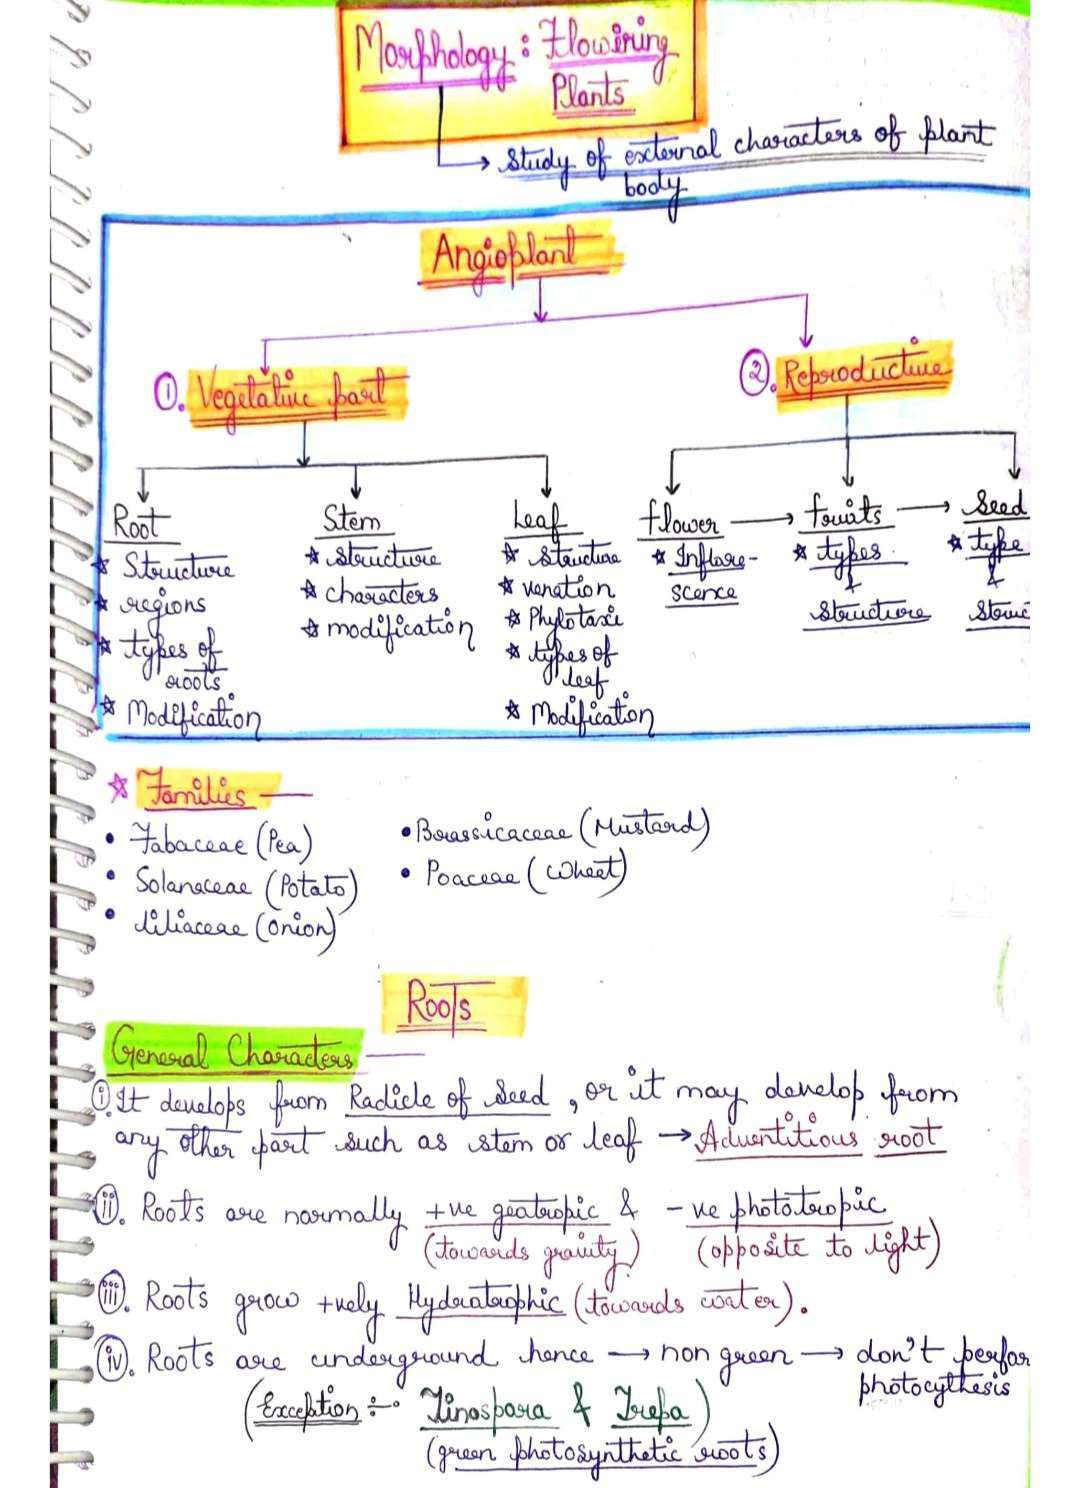 Morphology: Flowering
Plants
→ Study of external characters of plant
body
Angioplant
①. Vegetative part
②. Reproductive
Root
☆ Structure
☆ regions
☆ types of
roots
☆ Modification
Stem
☆ structure
☆ characters
☆ modification
Leaf
☆ structure
☆ venation
☆ Phylotaxi
☆ types of
leaf
☆ Modification
flower → fruits → Seed
☆ Inflore-
scence
☆ types
&
structure
☆ type
&
Struc
☆ Families —
• Fabaceae (Pea)
• Brassicaceae (Mustard)
• Solanaceae (Potato)
• Poaceae (Wheat)
• liliaceae (Onion)
Roots
General Characters —
ⓘ. It develops from Radicle of seed, or it may develop from
any other part such as stem or leaf → Adventitious root
ⓘⓘ. Roots are normally +ve geotropic & -ve phototropic
(towards gravity) (opposite to light)
ⓘⓘⓘ. Roots grow +vely Hydratrophic (towards water).
ⓘⓥ. Roots are underground hence → non green → don't perfor
photocythesis
(Exception ÷ Tinospara & Trepa)
(green photosynthetic roots)